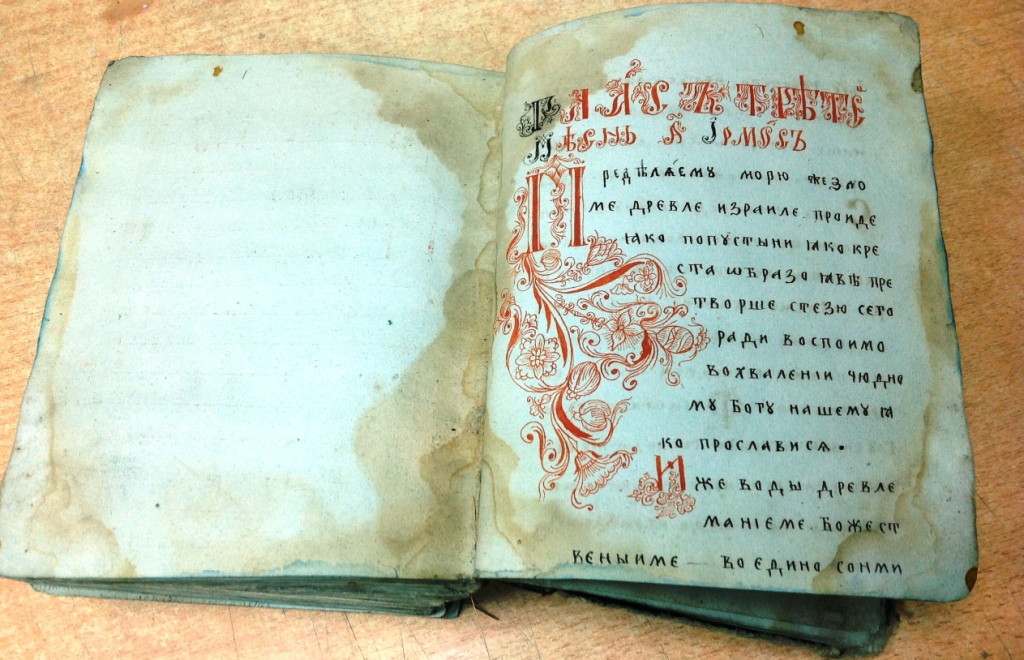 Гла́съ трѣте
Пѣснь а҃ Ірмо́съ
Предѣлѧ́ему морю жезло
ме древле израиле. проиде
ꙗко попустыни ꙗко кре
ста ѡбразо ꙗвѣ пре
творше стезю сего
ради воспоимо
вохваленіи чюдно
му богу нашему ꙗ
ко прославися.
Иже воды древле
маніеме. божест
веныиме воедино сонми